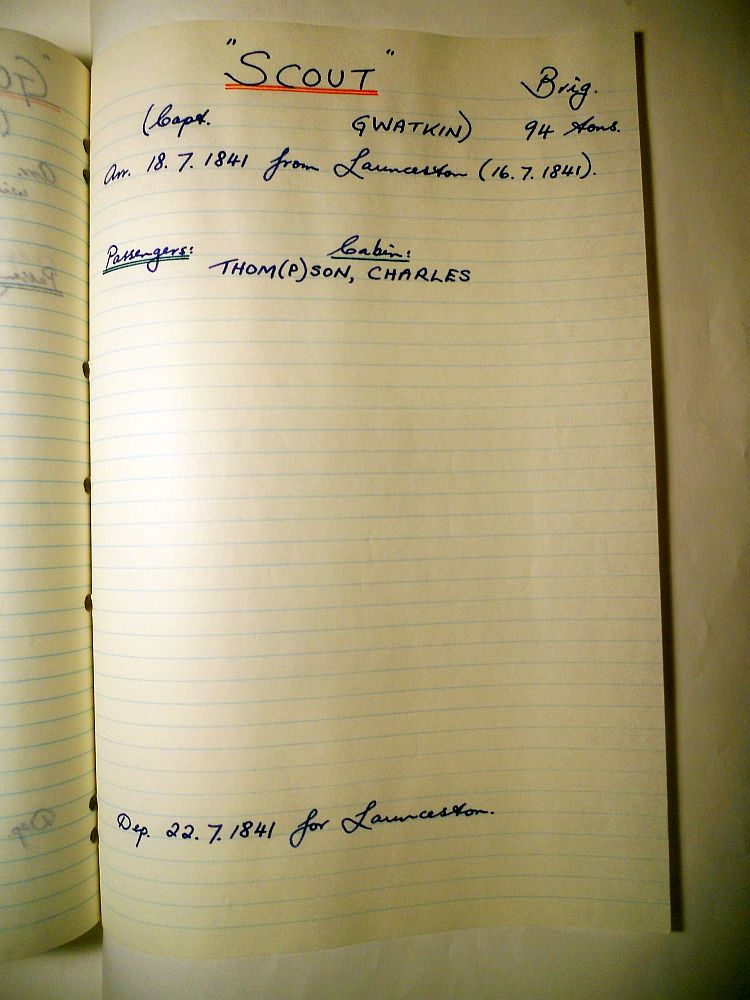 "SCOUT" Brig.
(Capt. GWATKIN) 94 tons.
Arr. 18.7.1841 from Launceston (16.7.1841).
Passengers: Cabin:
THOM(P)SON, CHARLES
Dep. 22.7.1841 for Launceston.